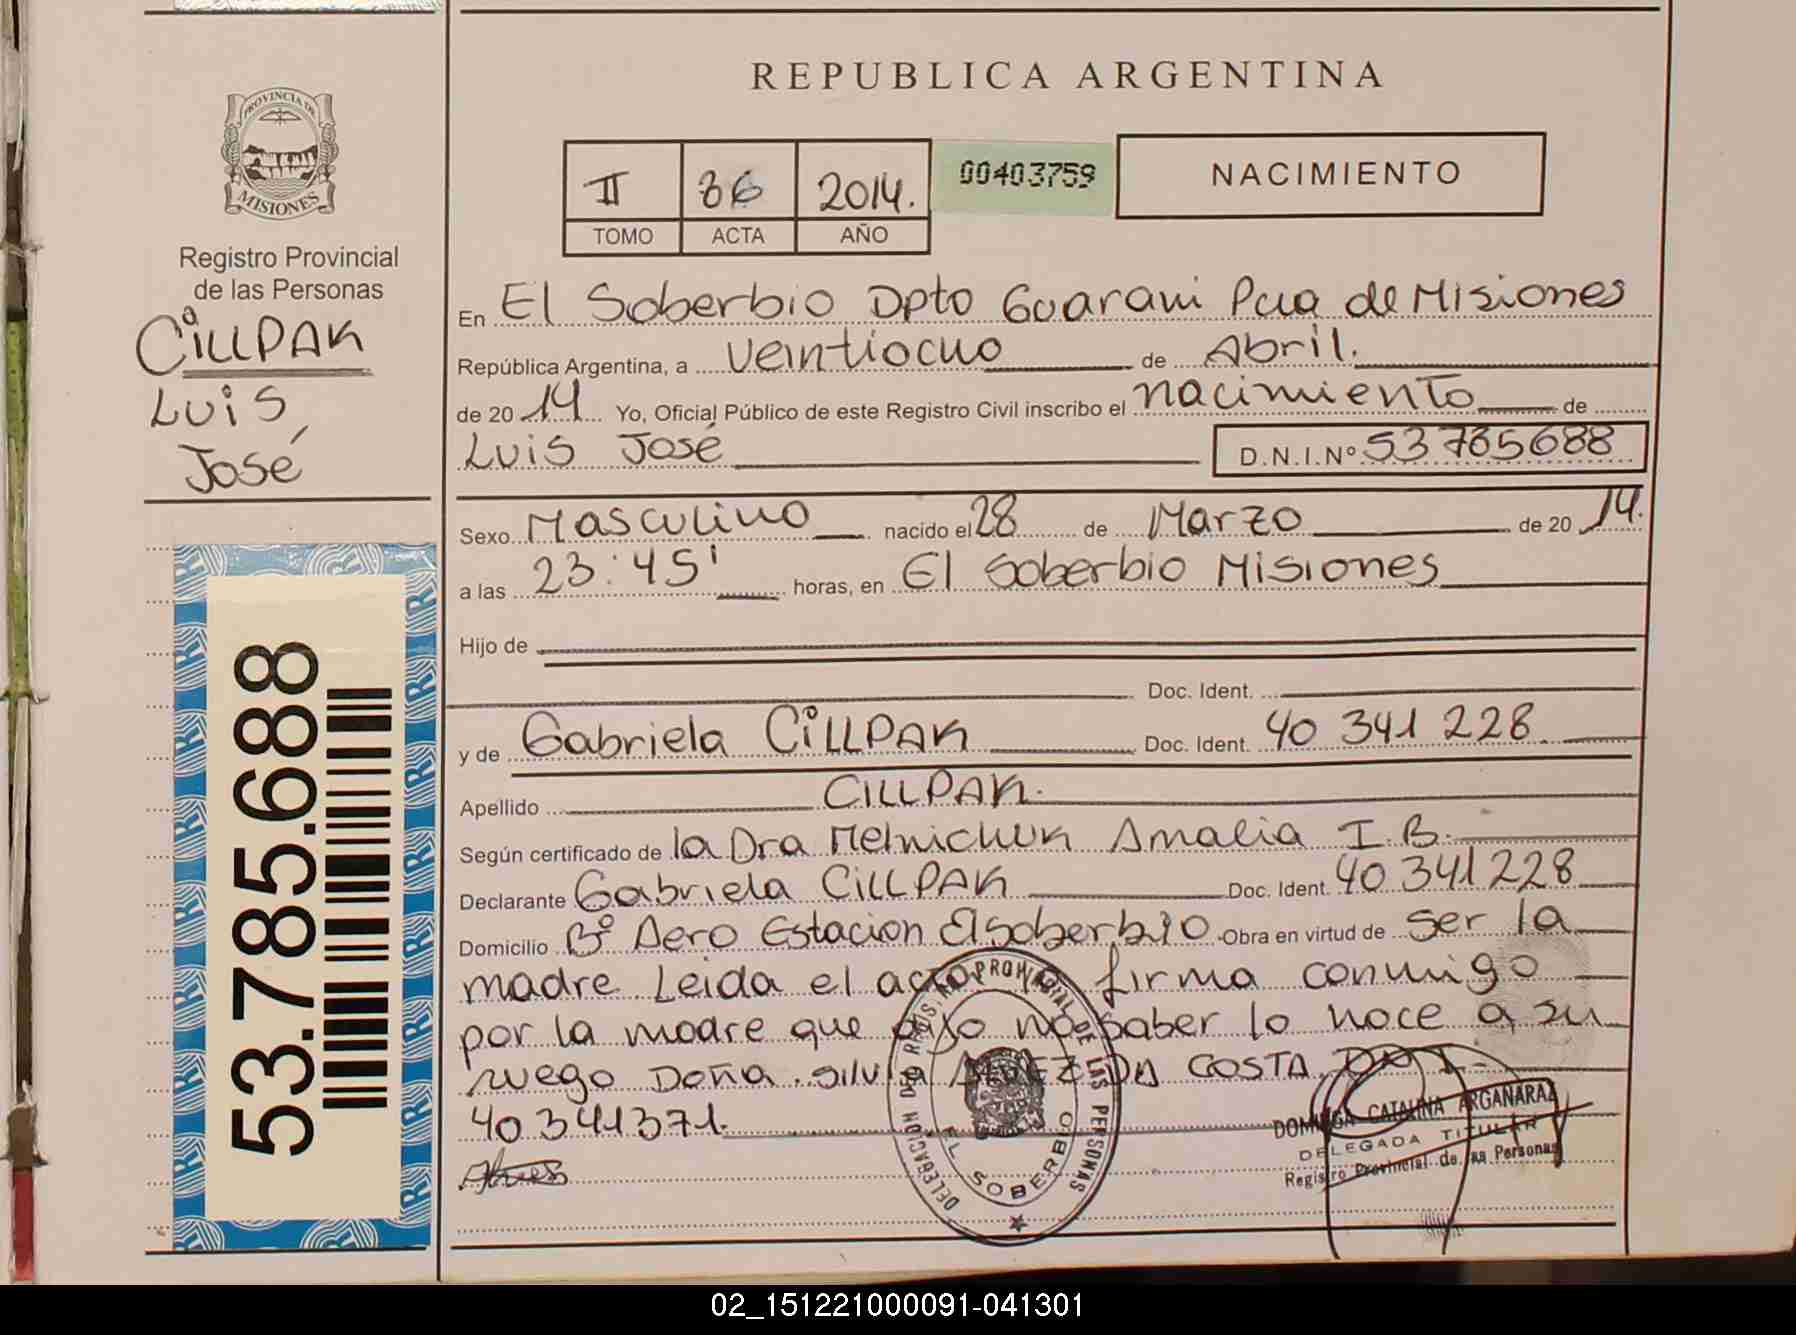 REPUBLICA ARGENTINA
PROVINCIA DE
MISIONES
Registro Provincial
de las Personas
CILLPAK
LUIS
José
53.785.688
II 36 2014. 00403759 NACIMIENTO
TOMO ACTA AÑO
En El Soberbio Dpto Guarani Pcia de Misiones
República Argentina, a veintiocho de Abril.
de 20 14 Yo, Oficial Público de este Registro Civil inscribo el nacimiento de
Luis José D.N.I.Nº 53785688
Sexo Masculino nacido el 28 de Marzo de 20 14.
a las 23:45' horas, en El Soberbio Misiones
Hijo de
Doc. Ident.
y de Gabriela CILLPAK Doc. Ident. 40 341 228
Apellido CILLPAK.
Según certificado de la Dra Melnichuk Amalia I.B.
Declarante Gabriela CILLPAK Doc. Ident. 40 341 228
Domicilio Bº Aero Estacion El Soberbio Obra en virtud de ser la
madre. Leida el acta firma conmigo
por la madre que dijo no saber lo hace a su
ruego Doña. Silvia DA COSTA DNI
40341371.
DELEGACIÓN DEL REGISTRO PROVINCIAL DE LAS PERSONAS
EL SOBERBIO
DOMINGA CATALINA ARGAÑARAZ
DELEGADA TITULAR
Registro Provincial de las Personas
02_151221000091-041301